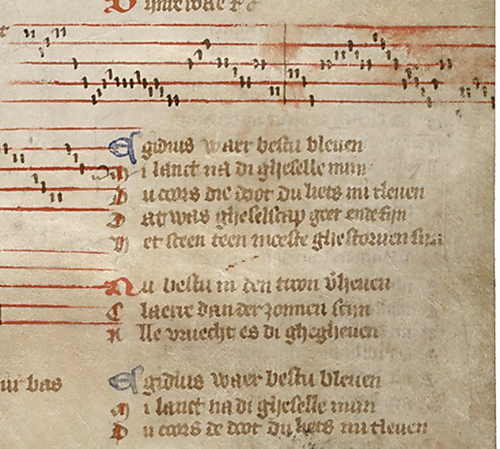 Egidius waer bestu bleuen
Mi lanct na di gheselle mijn
Du coors die doot du liets mi tleuen
Dat was gheselscap goet ende fijn
Het sceen teen moeste ghestoruen sijn
Nu bestu in den troon v̓heuen
Claerre dan der zonnen scijn
Alle vruecht es di ghegheuen
bas
Egidius waer bestu bleuen
Mi lanct na di gheselle mijn
Du coors de doot du liets mi tleuen